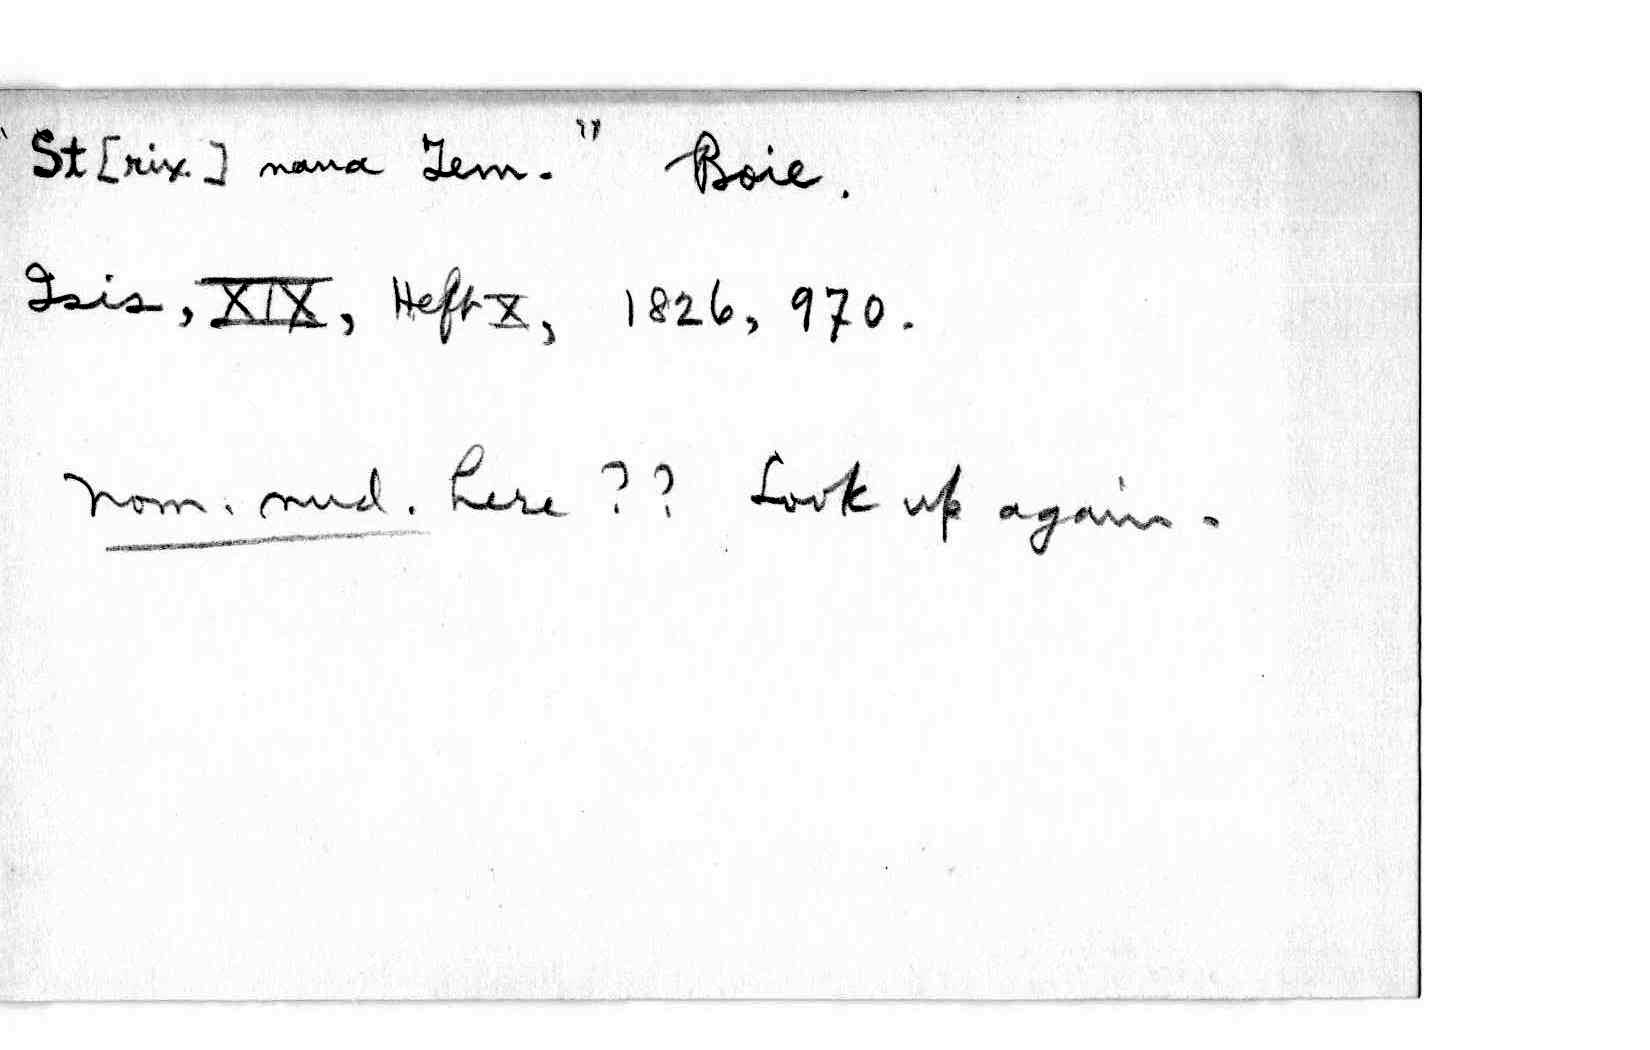 "St[rix.] nana Tem." Boie.
Isis, XIX, Heft X, 1826, 970.
nom. nud. here ?? Look up again.